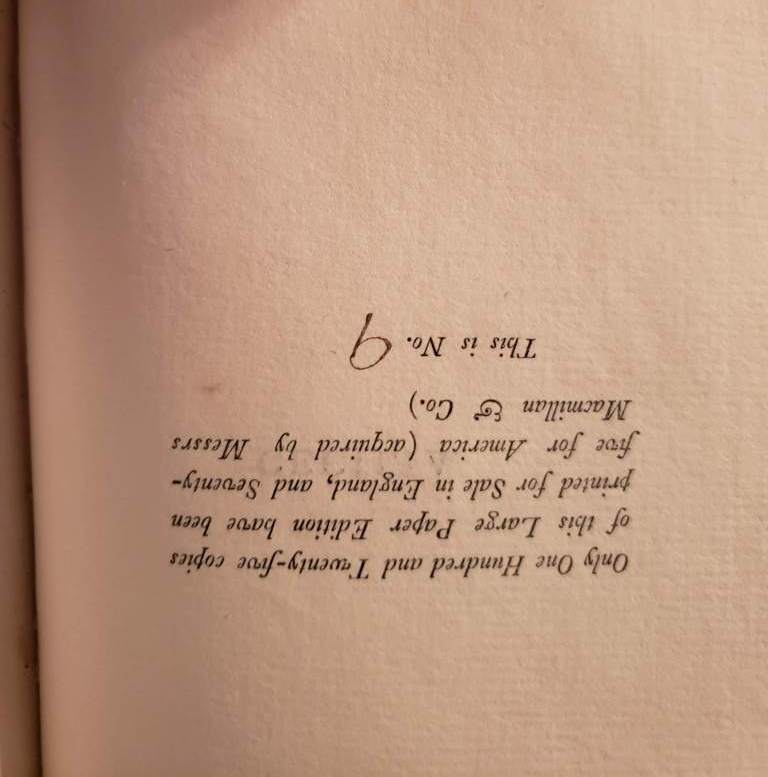 Only One Hundred and Twenty-five copies
of this Large Paper Edition have been
printed for Sale in England, and Seventy-
five for America (acquired by Messrs
Macmillan & Co.)
This is No. 9